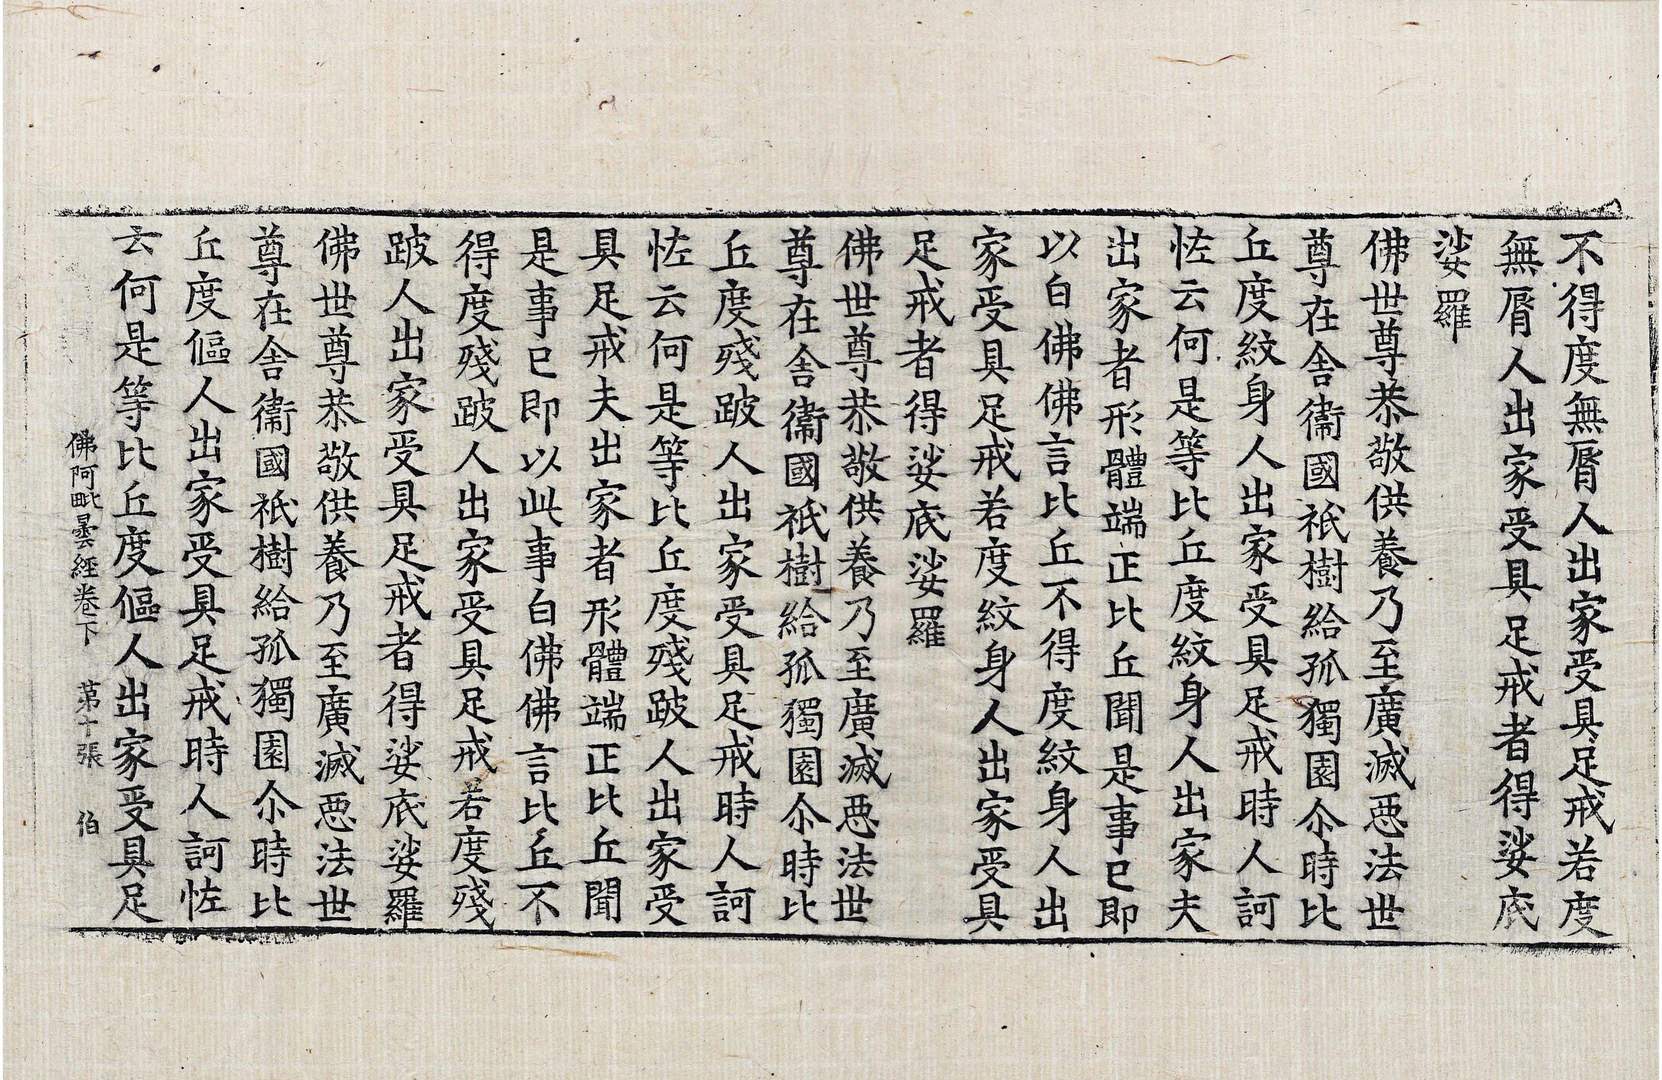 不得度無脣人出家受具足戒若度
無脣人出家受具足戒者得娑底
娑羅
佛世尊恭敬供養乃至廣滅悪法世
尊在舎衞國祇樹給孤獨園尒時比
丘度紋身人出家受具足戒時人訶
恠云何是等比丘度紋身人出家夫
出家者形體端正比丘聞是事已即
以白佛佛言比丘不得度紋身人出
家受具足戒若度紋身人出家受具
足戒者得娑底娑羅
佛世尊恭敬供養乃至廣滅悪法世
尊在舎衞國祇樹給孤獨園尒時比
丘度殘跛人出家受具足戒時人訶
恠云何是等比丘度殘跛人出家受
具足戒夫出家者形體端正比丘聞
是事已即以此事白佛佛言比丘不
得度殘跛人出家受具足戒若度殘
跛人出家受具足戒者得娑底娑羅
佛世尊恭敬供養乃至廣滅悪法世
尊在舎衞國祇樹給孤獨園尒時比
丘度傴人出家受具足戒時人訶恠
云何是等比丘度傴人出家受具足
佛阿毗曇經卷下 第十張 伯